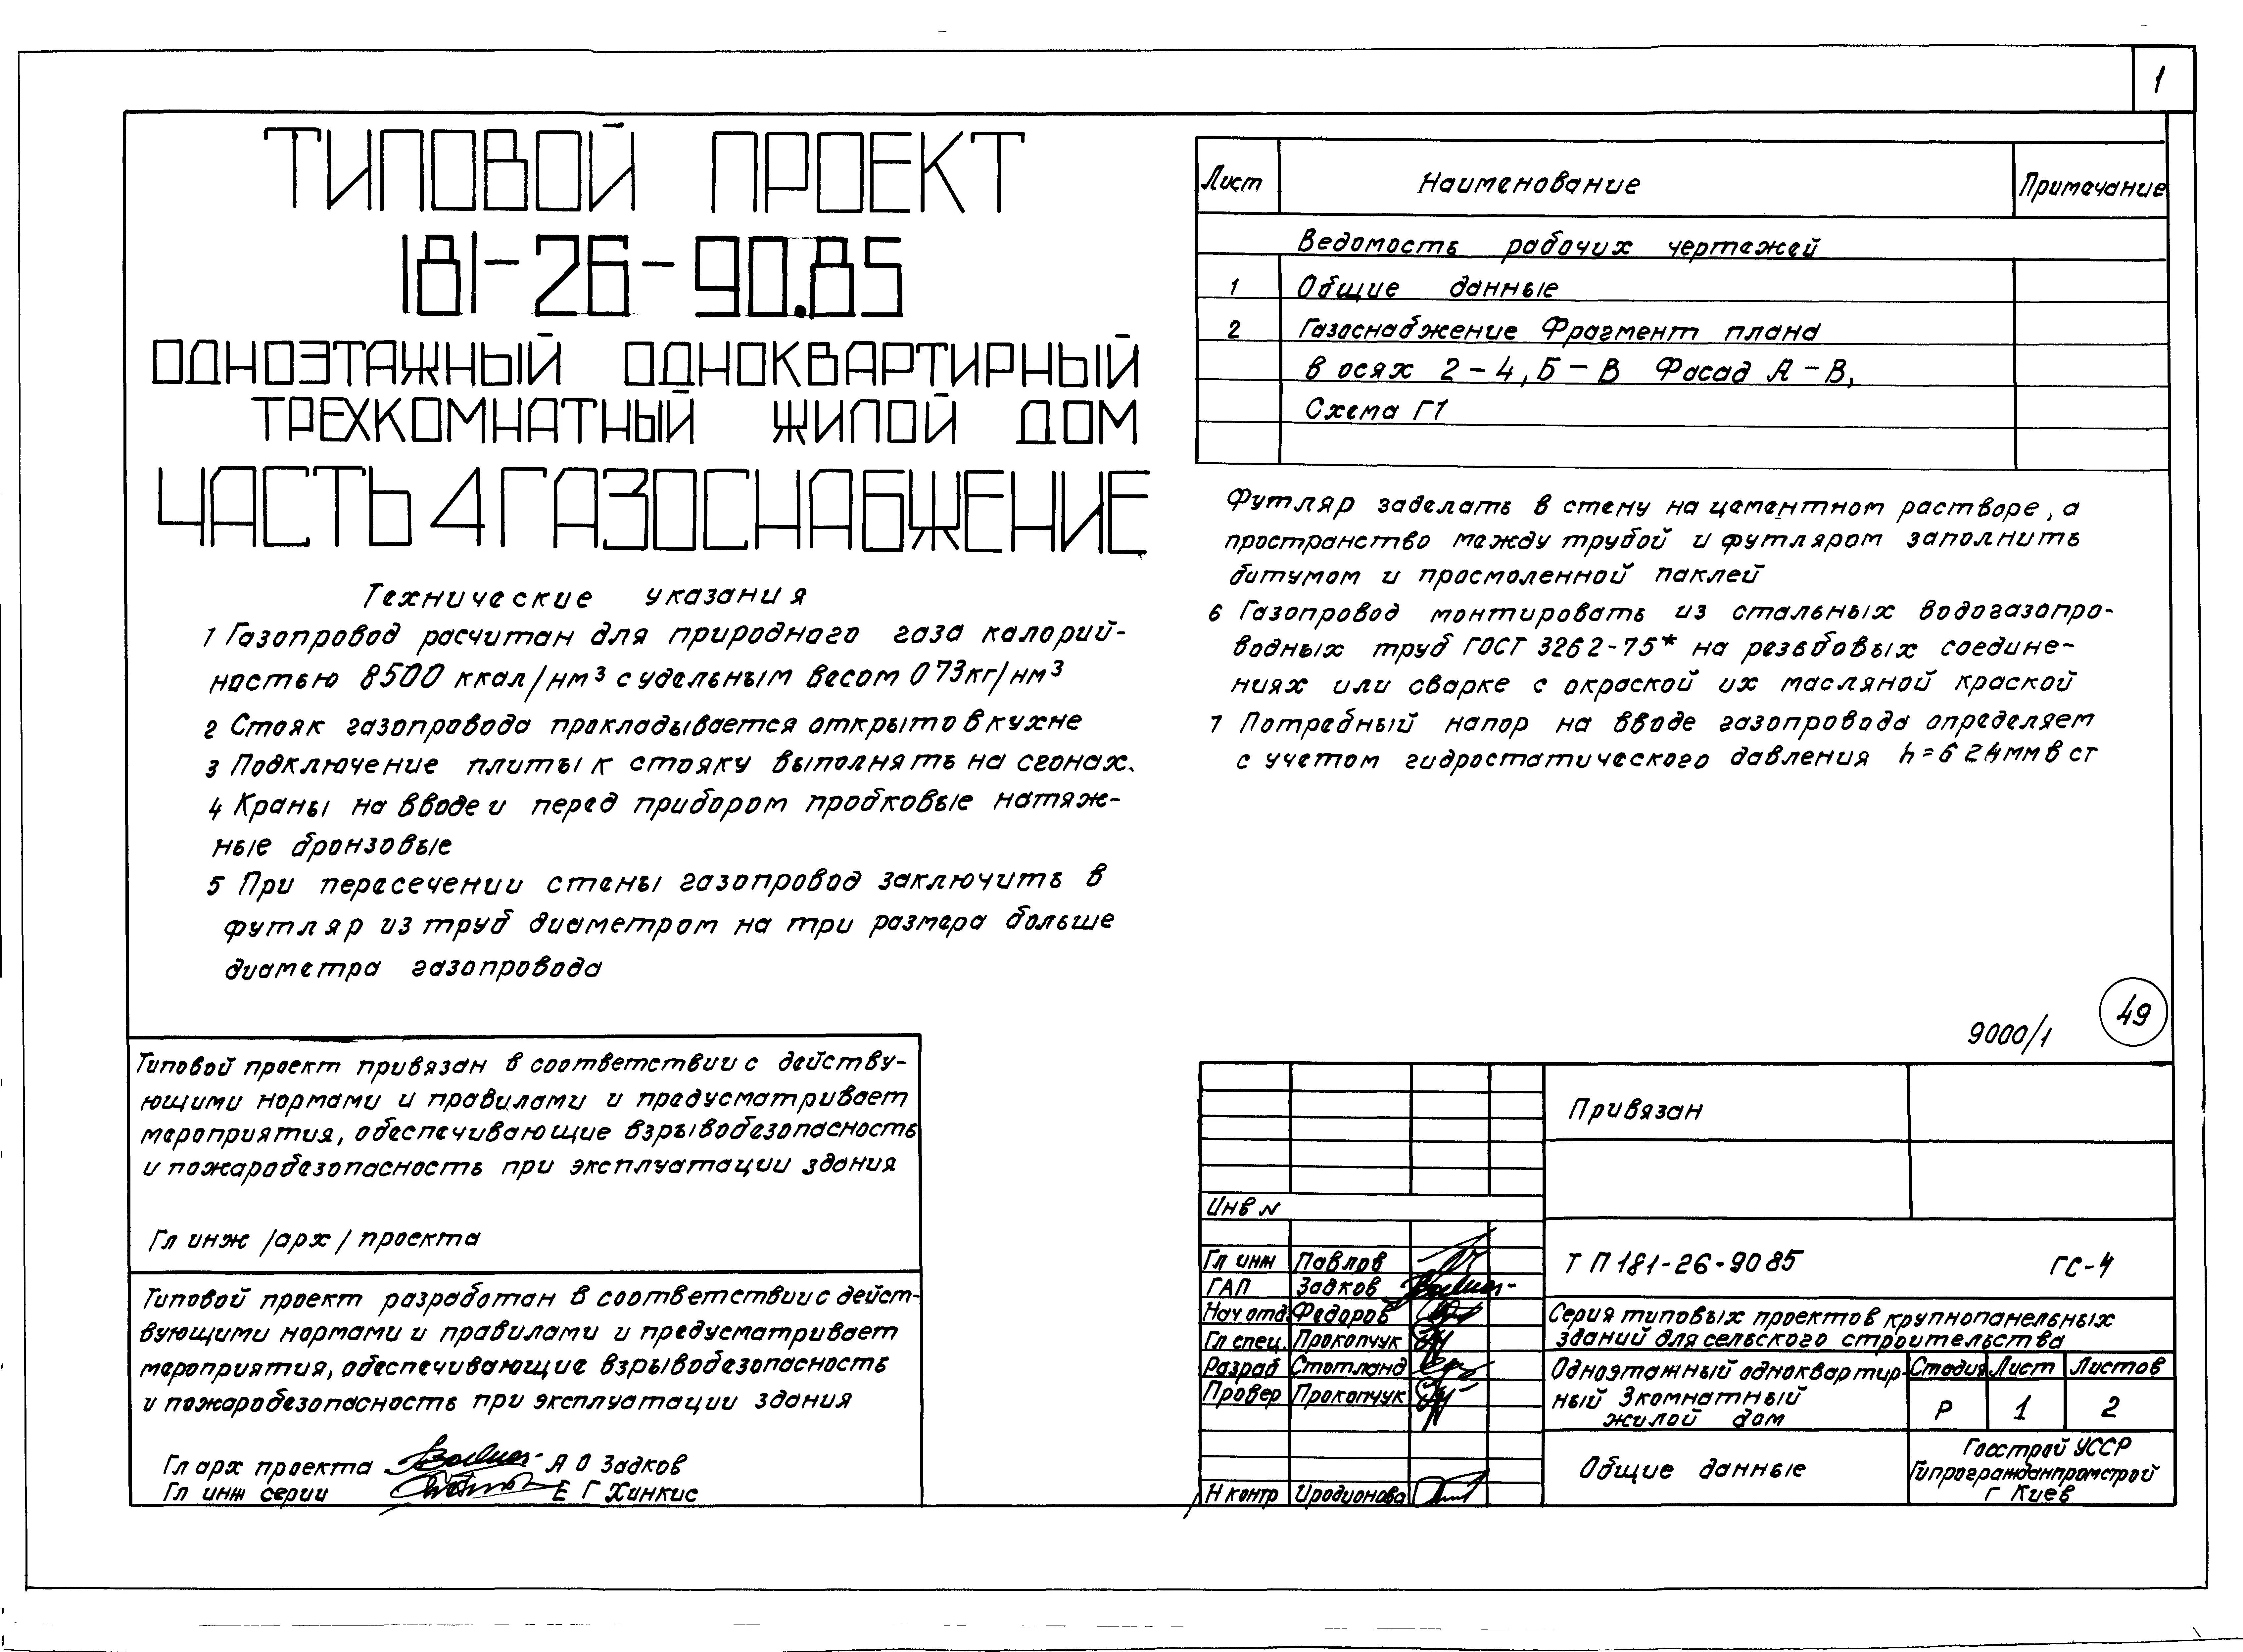 1
ТИПОВОЙ ПРОЕКТ
181-26-90.85
ОДНОЭТАЖНЫЙ ОДНОКВАРТИРНЫЙ
ТРЕХКОМНАТНЫЙ ЖИЛОЙ ДОМ
ЧАСТЬ 4 ГАЗОСНАБЖЕНИЕ
Технические указания
1 Газопровод расчитан для природного газа калорий-
ностью 8500 ккал/нм³ с удельным весом 0 73кг/нм³
2 Стояк газопровода прокладывается открыто в кухне
3 Подключение плиты к стояку выполнять на сгонах.
4 Краны на вводе и перед прибором пробковые натяж-
ные бронзовые
5 При пересечении стены газопровод заключить в
футляр из труб диаметром на три размера больше
диаметра газопровода
Лист Наименование Примечание
Ведомость рабочих чертежей
1 Общие данные
2 Газоснабжение Фрагмент плана
в осях 2-4, Б-В Фасад А-В,
Схема Г1
Футляр заделать в стену на цементном растворе, а
пространство между трубой и футляром заполнить
битумом и просмоленной паклей
6 Газопровод монтировать из стальных водогазопро-
водных труб ГОСТ 3262-75* на резьбовых соедине-
ниях или сварке с окраской их масляной краской
7 Потребный напор на вводе газопровода определяем
с учетом гидростатического давления h=6 24мм в ст
9000/1
49
Типовой проект привязан в соответствии с действу-
ющими нормами и правилами и предусматривает
мероприятия, обеспечивающие взрывобезопасность
и пожаробезопасность при эксплуатации здания
Гл инж /арх/ проекта
Типовой проект разработан в соответствии с дейст-
вующими нормами и правилами и предусматривает
мероприятия, обеспечивающие взрывобезопасность
и пожаробезопасность при эксплуатации здания
Гл арх проекта А О Задков
Гл инж серии Е Г Хинкис
Привязан
Инв N
Гл инж Павлов
ГАП Задков
Нач отд. Федоров
Гл спец. Прокопчук
Разраб Стотланд
Провер Прокопчук
Н контр Иродионова
Т П 181-26-90 85 ГС-4
Серия типовых проектов крупнопанельных
зданий для сельского строительства
Одноэтажный одноквартир-
ный 3комнатный
жилой дом
Стадия Лист Листов
Р 1 2
Общие данные
Госстрой УССР
Гипрогражданпромстрой
г Киев